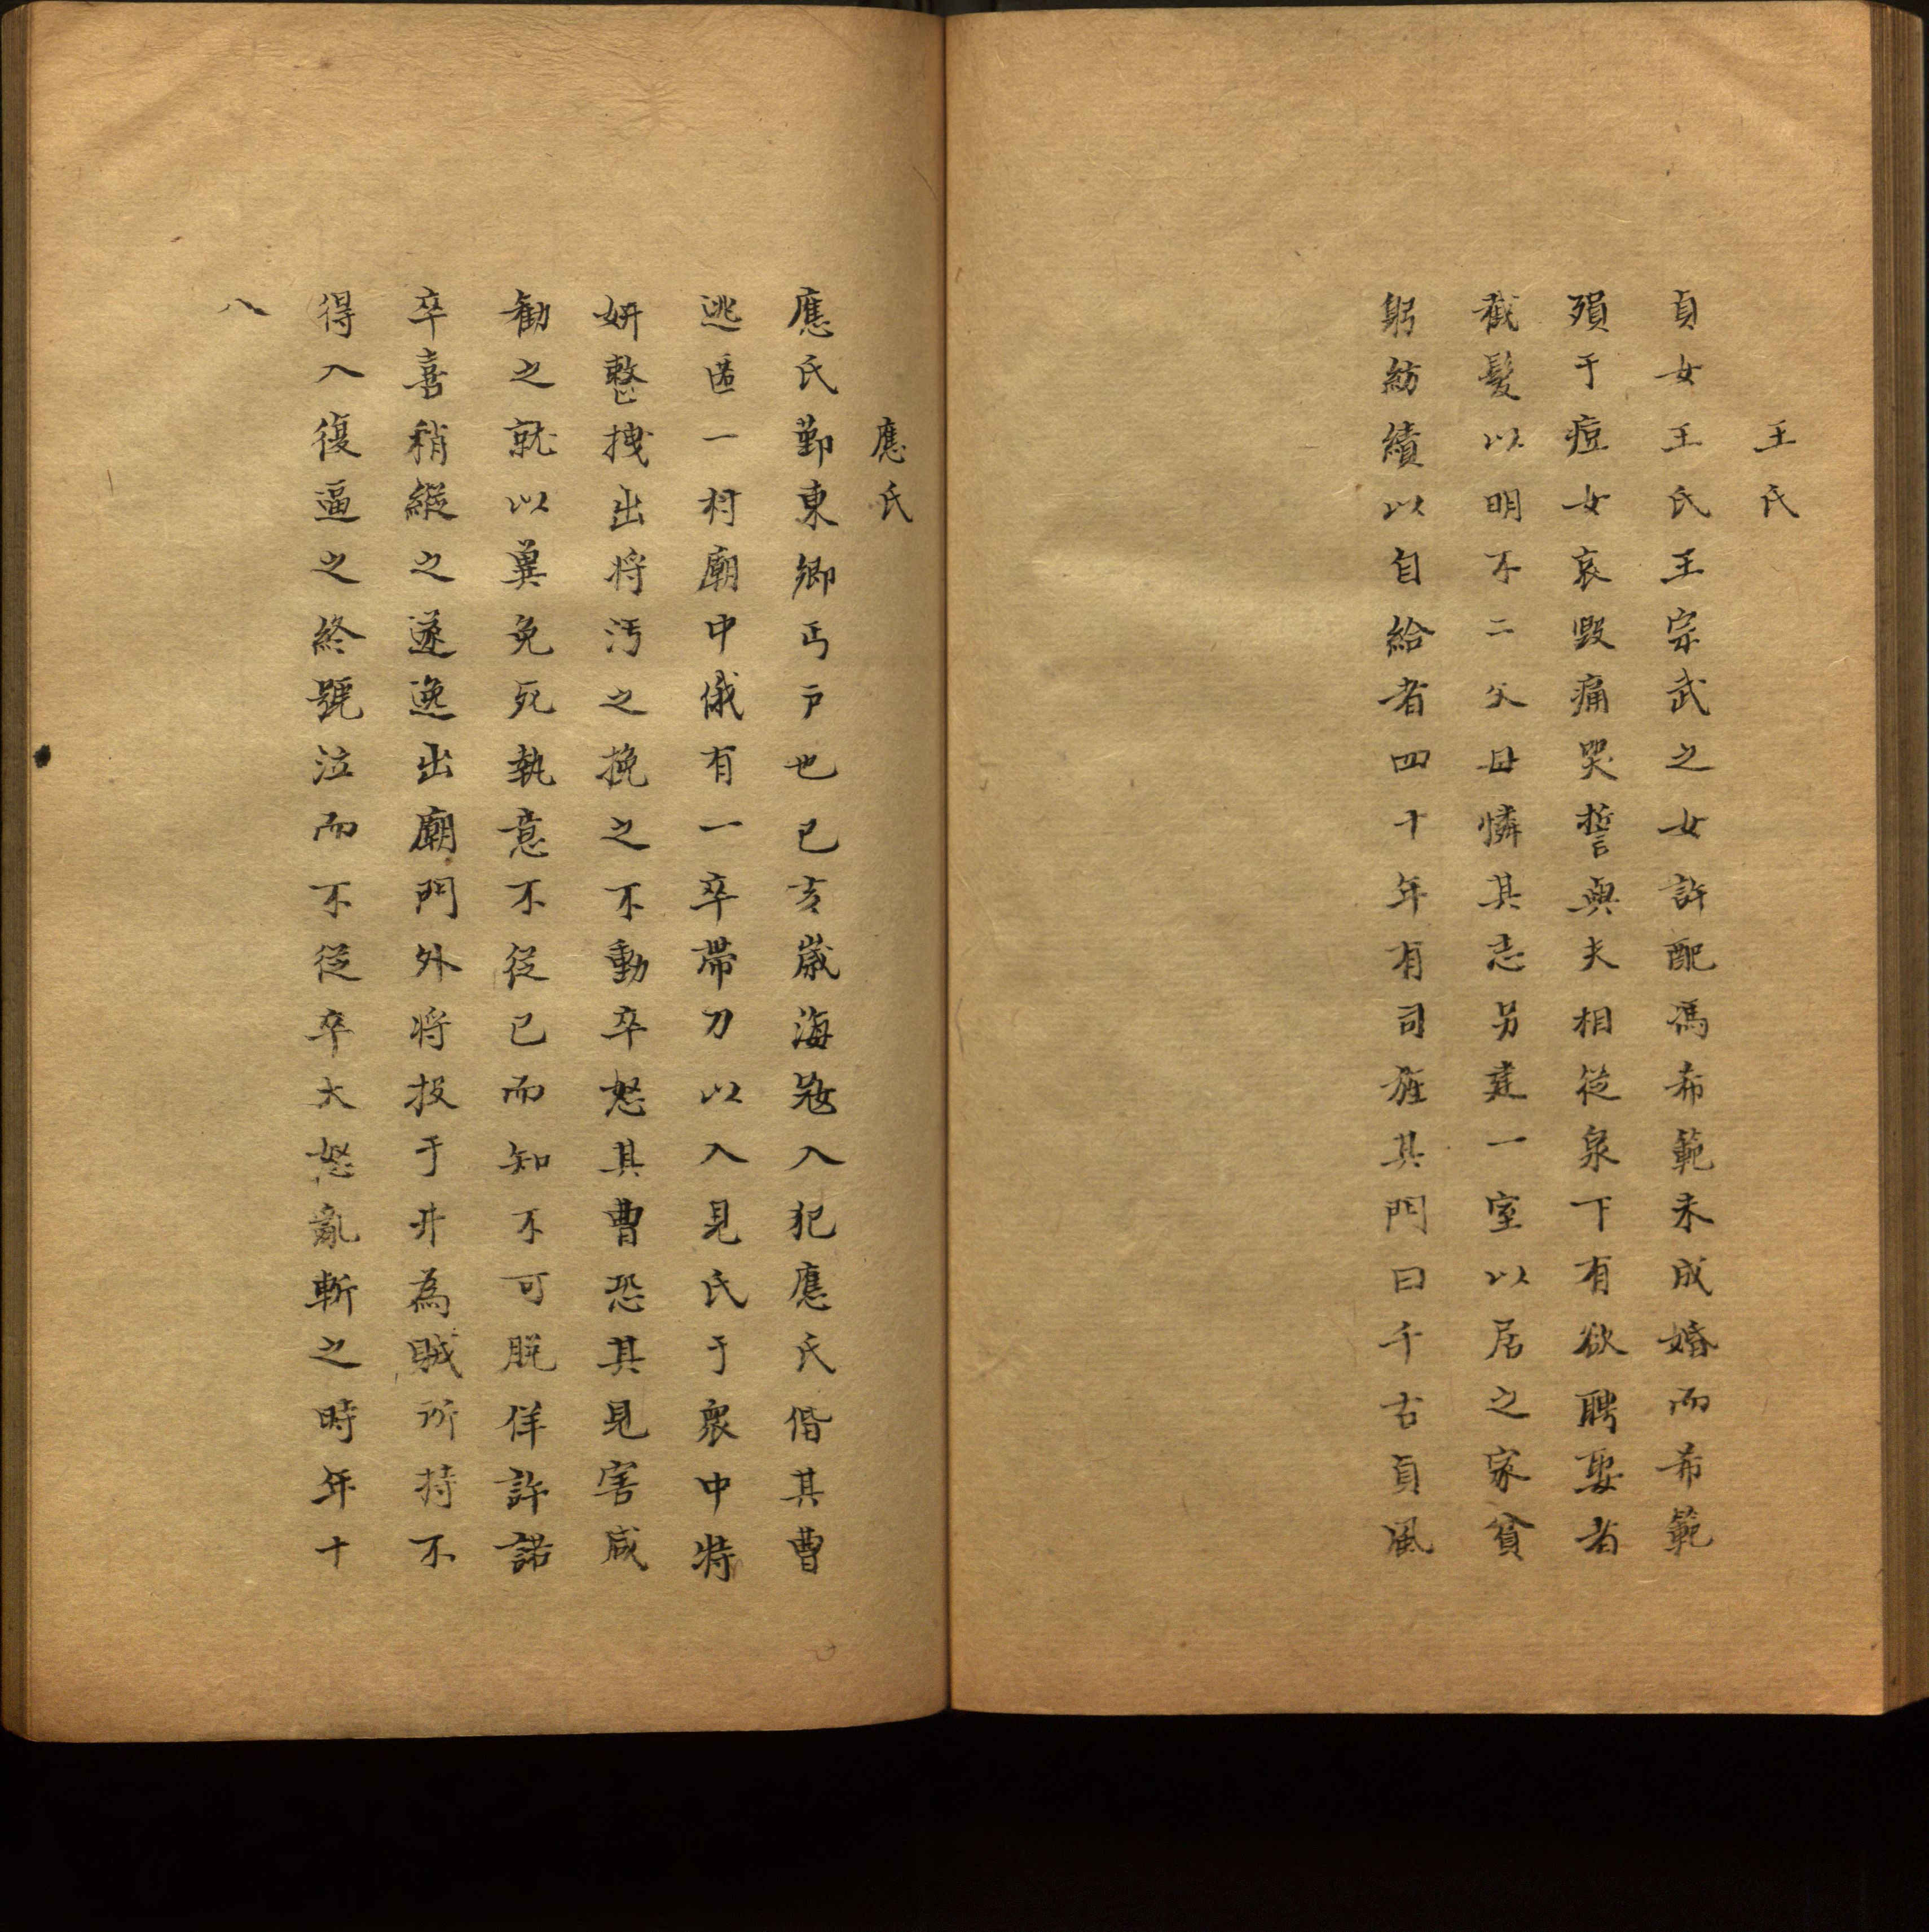 王氏
貞女王氏王宗武之女許配馮希範未成婚而希範
殞于痘女哀毀痛哭誓與夫相從泉下有欲聘娶者
截髮以明不二父母憐其志另建一室以居之家貧
躬紡績以自給者四十年有司旌其門曰千古貞風
應氏
應氏鄞東鄉丐戸也己亥歲海㓂入犯應氏偕其曹
逃匿一村廟中俄有一卒帶刀以入見氏于衆中特
妍整拽出将汚之挽之不動卒怒其曹恐其見害咸
勸之就以冀免死執意不從已而知不可脫佯許諾
卒喜稍縱之遂逸出廟門外将投于井為賊所持不
得入復逼之終號泣而不從卒大怒亂斬之時年十
八